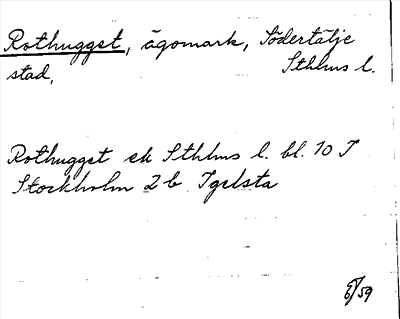 Rothugget, ägomark, Södertälje
stad, Sthlms l.
Rothugget ek Sthlms l. bl. 10 I
Stockholm 2 b Igelsta
/59